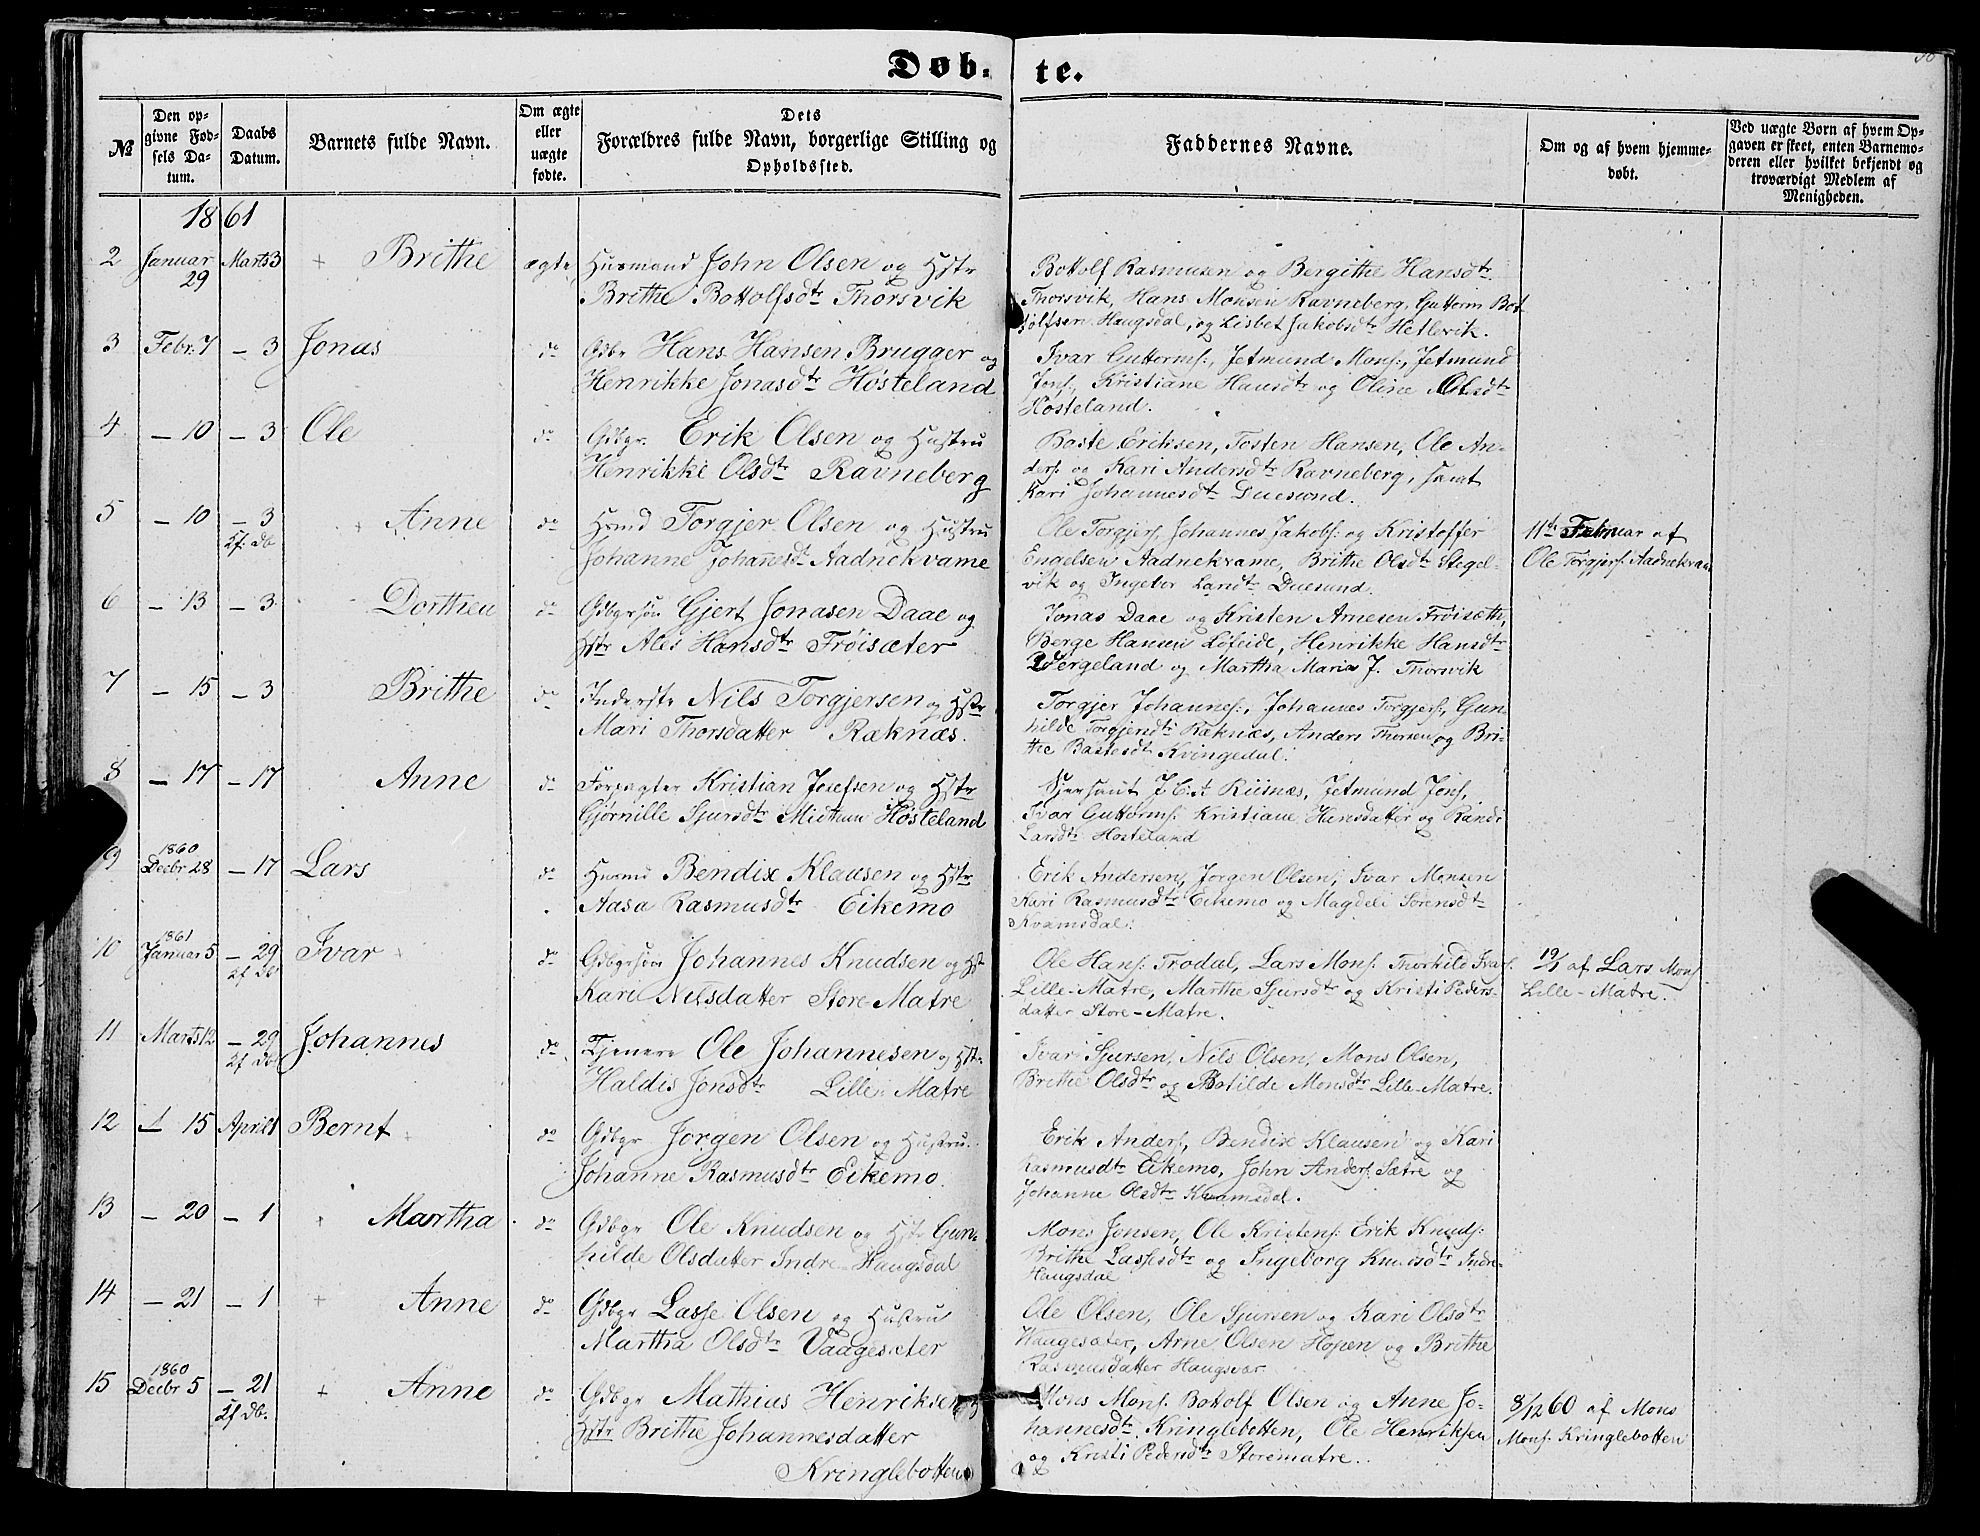 Døb-te.
№
Den op-
givne Fød-
sels Da-
tum.
Daabs
Datum.
Barnets fulde Navn.
Om ægte
eller
uægte
fødte.
Dets
Forældres fulde Navn, borgerlige Stilling og
Opholdssted.
Faddernes Navne.
Om og af hvem hjemme-
døbt.
Ved uægte Børn af hvem Op-
gaven er skeet, enten Barnemo-
deren eller hvilket bekjendt og
troværdigt Medlem af
Menigheden.
1861
2 Januar 29 Marts 3 + Brithe ægte
Husmand John Olsen og Hstr
Brithe Bottolfsdtr Thorsvik
Bottolf Rasmusen og Bergithe Hansdtr
Thorsvik, Hans Monsen Ravneberg, Guttorm Bot-
tolfsen Haugsdal, og Lisbet Jakobsdtr Hetlevik.
3 Febr. 7 – 3 Jonas do
Gdbr Hans Hansen Brugger og
Henrikke Jonasdtr Høsteland
Ivar Guttorms:, Jetmund Mons:, Jetmund
Jons:, Kristiane Hansdtr og Oline Olsdtr
Høsteland.
4 – 10 – 3 Ole do
Gdbgr. Erik Olsen og Hustru
Henrikke Olsdtr Ravneberg
Baste Eriksen, Tosten Hansen, Ole An-
ders: og Kari Andersdtr Ravneberg, samt
Kari Johannesdtr Duesund.
5 – 10 – 3 2f. db + Anne do
Hsmd Torgjer Olsen og Hustru
Johanne Johannesdtr Aadnekvame
Ole Torgjers: Johannes Jakobs: og Kristoffer
Engelsen Aadnekvame, Brithe Olsdtr Stegel-
vik og Ingebor Larsdtr Duesund.
11te Februar af
Ole Torgjers: Aadnekvam
6 – 13 – 3 Dorthea do
Gdbgrsøn Gjert Jonasen Daae og
Hstr Ales Hansdtr Frøisæter
Jonas Daae og Kristen Arnesen Frøisæth,
Berge Hansen Lifeide, Henrikke Hansdtr
Vergeland og Martha Maria J. Thorsvik
7 – 15 – 3 Brithe do
Inderste Nils Torgjersen og Hstr
Mari Thorsdatter Ræknæs.
Torgjer Johannes:, Johannes Torgjers:, Gun-
hilde Torgjersdtr Ræknæs, Anders Thorsen og Bri-
the Bastesdtr Kvingedal.
8 – 17 – 17 Anne do
Forpagter Kristian Josefsen og Hstr
Gjørnille Sjursdtr Mictuu Høsteland
J. C. A. Riisnæs, Jetmund Jons:,
Ivar Guttorms: Kristiane Hansdatter og Randi
Larsdtr Høsteland
9 1860 Decbr 28 – 17 Lars do
Husmd Bendix Klausen og Hstr
Aasa Rasmusdtr Eikemo
Erik Andersen, Jørgen Olsen, Ivar Monsen
Kari Rasmusdtr Eikemo og Magdeli Sørensdtr
Kvamsdal.
10 1861 Januar 5 – 29 2f db Ivar + do
Gdbgrsøn Johannes Knudsen og Hst
Kari Nilsdatter Store-Matre
Ole Hans: Trodal, Lars Mons: Thorkild Ivars:
Lille-Matre, Marthe Sjursdtr og Kristi Peders-
datter Store-Matre.
19/1 af Lars Mons
Lille-Matre.
11 Marts 12 – 29 2f db Johannes do
Tjenere Ole Johannesen og Hst:
Haldis Jonsdtr Lille-Matre
Ivar Sjursen, Nils Olsen, Mons Olsen,
Brithe Olsdtr og Botilde Monsdtr Lille-Matre.
12 – 15 April 1 Bernt + do
Gdbgr Jørgen Olsen og Hustru
Johanne Rasmusdtr Eikemo.
Erik Anders:, Bendix Klausen og Kari
Rasmusdtr Eikemo, John Anders: Sætre og
Johanne Olsdtr Kvamsdal.
13 – 20 – 1 + Martha do
Gdbgr Ole Knudsen og Hstr Gun-
hilde Olsdatter Indre-Haugsdal
Mons Jonsen, Ole Kristens: Erik Knuds:
Brithe Lassesdtr og Ingeborg Knudsdtr Indre-
Haugsdal
14 – 21 – 1 + Anne do
Gdbgr Lasse Olsen og Hustru
Martha Olsdtr Vaagesæter
Ole Olsen, Ole Sjursen og Kari Olsdtr
Vaagesæter, Arne Olsen Hopen og Brithe
Rasmusdatter Haugsvær
15 1860 Decbr 5 – 21 2f db. + Anne do
Gdbgr Mathias Henriksen og
Hstr Brithe Johannesdatter
Kringlebotten
Mons Mons: Bottolf Olsen og Anne Jo-
hannesdtr Kringlebotten, Ole Henriksen
og Kristi Pedersdtr Storematre.
8/12 60 af Mons
Mons: Kringlebotten